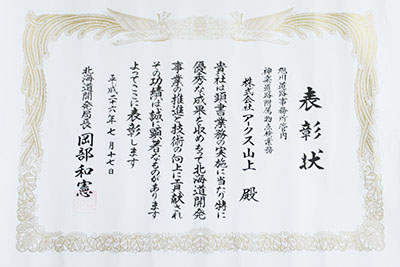 表彰状
旭川道路事務所管内
神楽道路附属物点検業務
株式会社アクス山上 殿
貴社は頭書業務の実施に当り特に
優秀な成果を収めもって北海道開発
事業の推進と技術の向上に貢献され
その功績は誠に顕著なものがあります
よってここに表彰します
平成二十六年七月十七日
北海道開発局長 岡部和憲